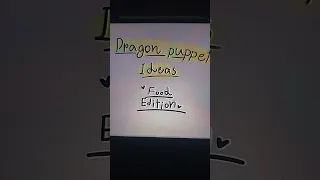 Dragon puppet
Ideas
Food
Edition